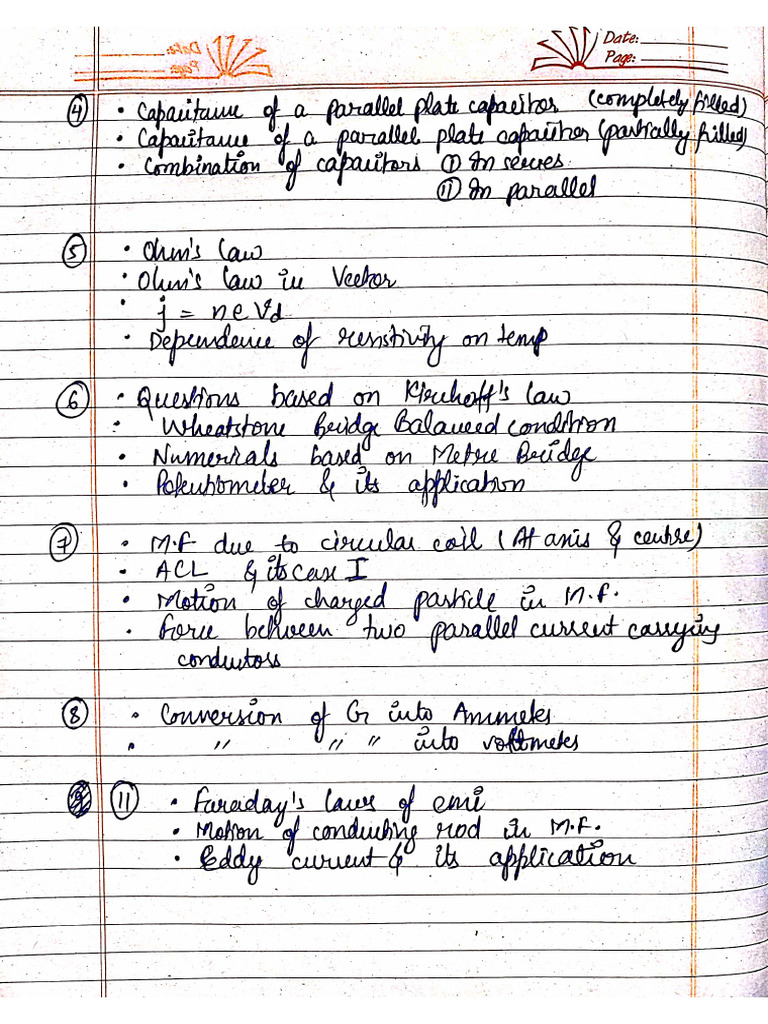 Date:
Page:
④ • Capacitance of a parallel plate capacitor (completely filled)
• Capacitance of a parallel plate capacitor (partially filled)
• Combination of capacitors ① In series
⑪ In parallel
⑤ • Ohm's law
• Ohm's law in Vector
• j = neVd
• Dependence of resistivity on temp
⑥ • Questions based on Kirchoff's law
• Wheatstone Bridge Balanced condition
• Numericals based on Metre Bridge
• Potentiometer & its application
⑦ • M.F due to circular coil (At axis & centre)
• ACL & its Case I
• Motion of charged particle in M.F.
• Force between two parallel current carrying
conductors
⑧ • Conversion of G into Ammeter
• " " " into voltmeter
⑪ • Faraday's laws of emi
• Motion of conducting rod in M.F.
• Eddy current & its application